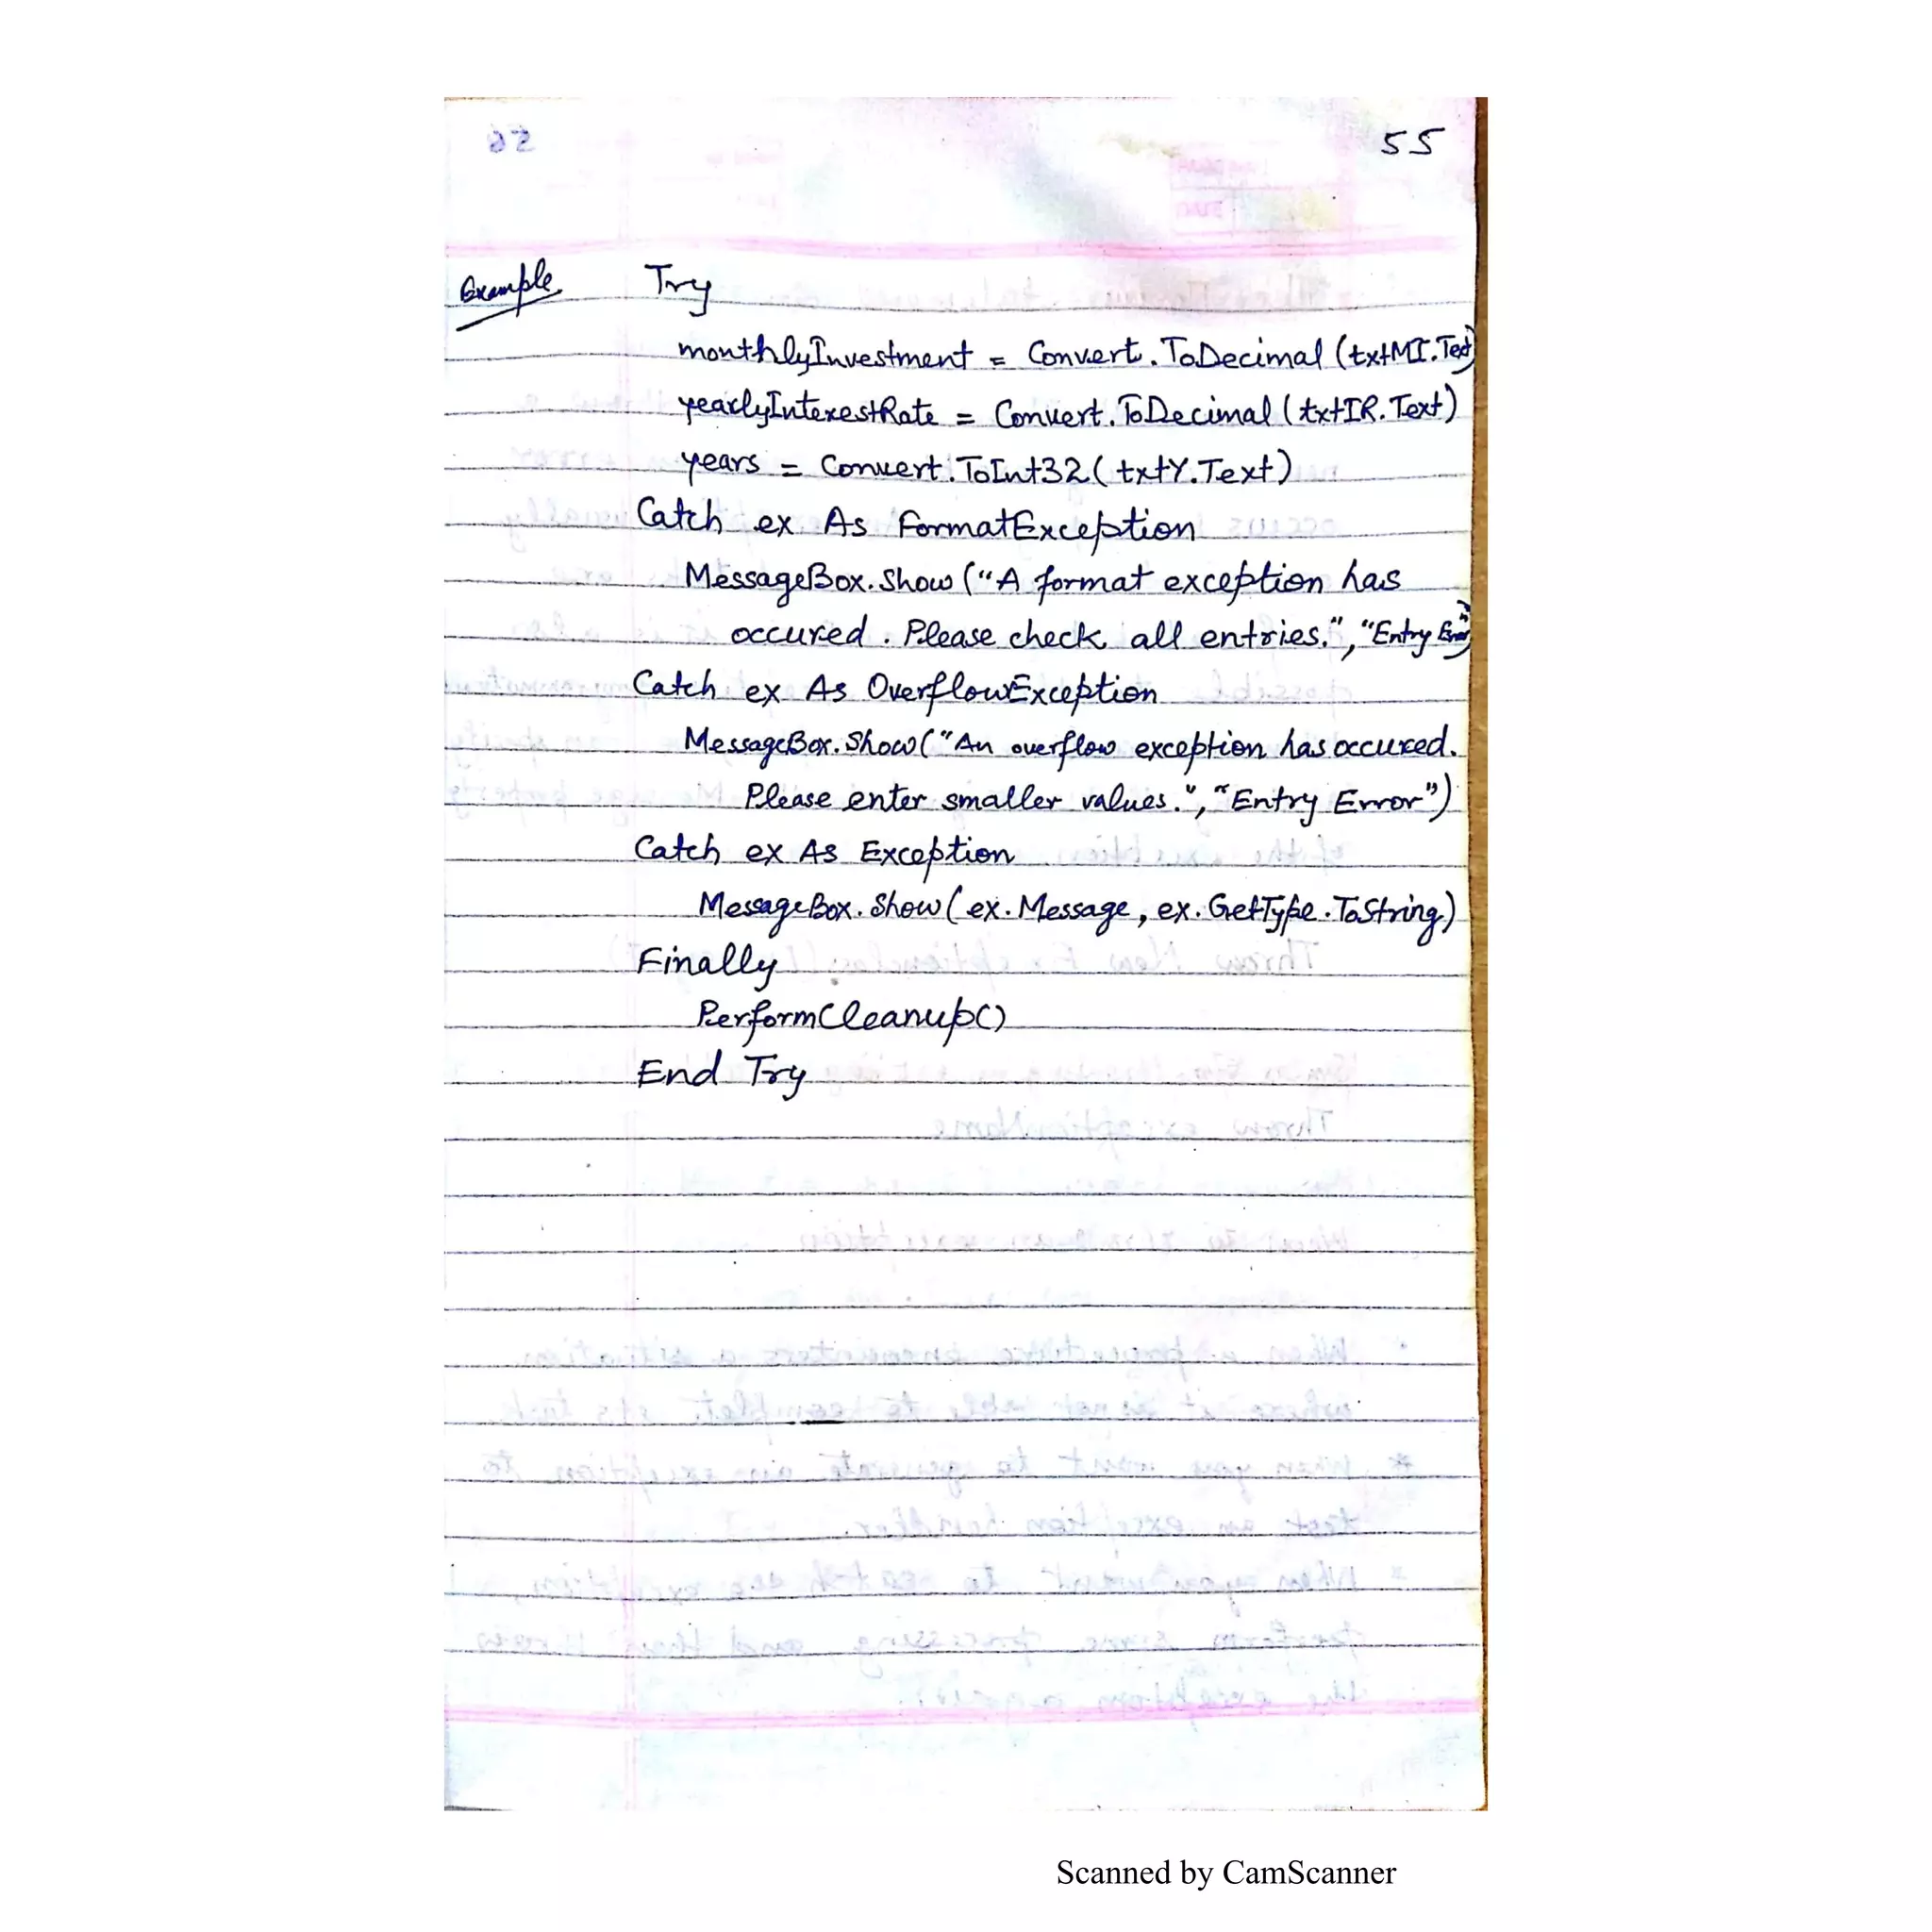 55
Example Try
monthlyInvestment = Convert.ToDecimal(txtMI.Text)
yearlyInterestRate = Convert.ToDecimal(txtIR.Text)
years = Convert.ToInt32(txtY.Text)
Catch ex As FormatException
MessageBox.Show("A format exception has
occured. Please check all entries.", "Entry Error")
Catch ex As OverflowException
MessageBox.Show("An overflow exception has occured.
Please enter smaller values.", "Entry Error")
Catch ex As Exception
MessageBox.Show(ex.Message, ex.GetType.ToString)
Finally
PerformCleanup()
End Try
Scanned by CamScanner